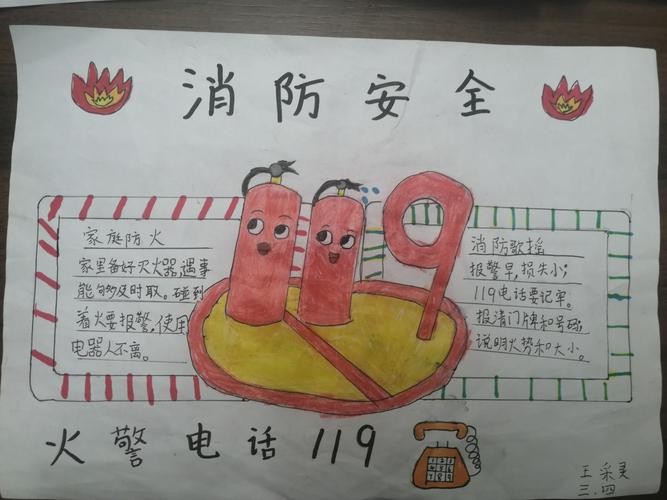 消防安全
家庭防火
家里备好灭火器,遇事
能够及时取。碰到
着火要报警,使用
电器人不离。
119
消防歌摇
报警早,损失小;
119电话要记牢。
报清门牌和号码,
说明火势和大小。
火警电话119
王采灵
三.四